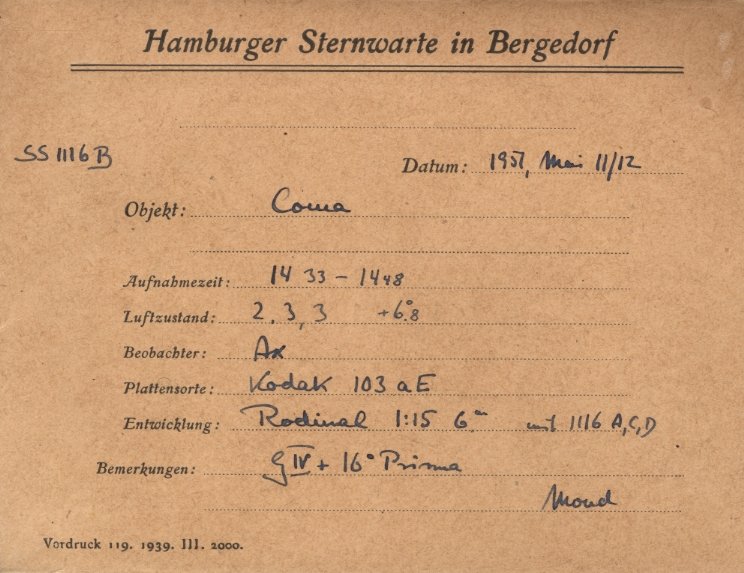 Hamburger Sternwarte in Bergedorf
SS 1116 B
Datum: 1957, Mai 11/12
Objekt: Coma
Aufnahmezeit: 14 33 – 14 48
Luftzustand: 2, 3, 3 +6°.8
Beobachter: Ax
Plattensorte: Kodak 103 a E
Entwicklung: Rodinal 1:15 6m mit 1116 A,C,D
Bemerkungen: G IV + 16° Prisma
Mond
Vordruck 119. 1939. III. 2000.